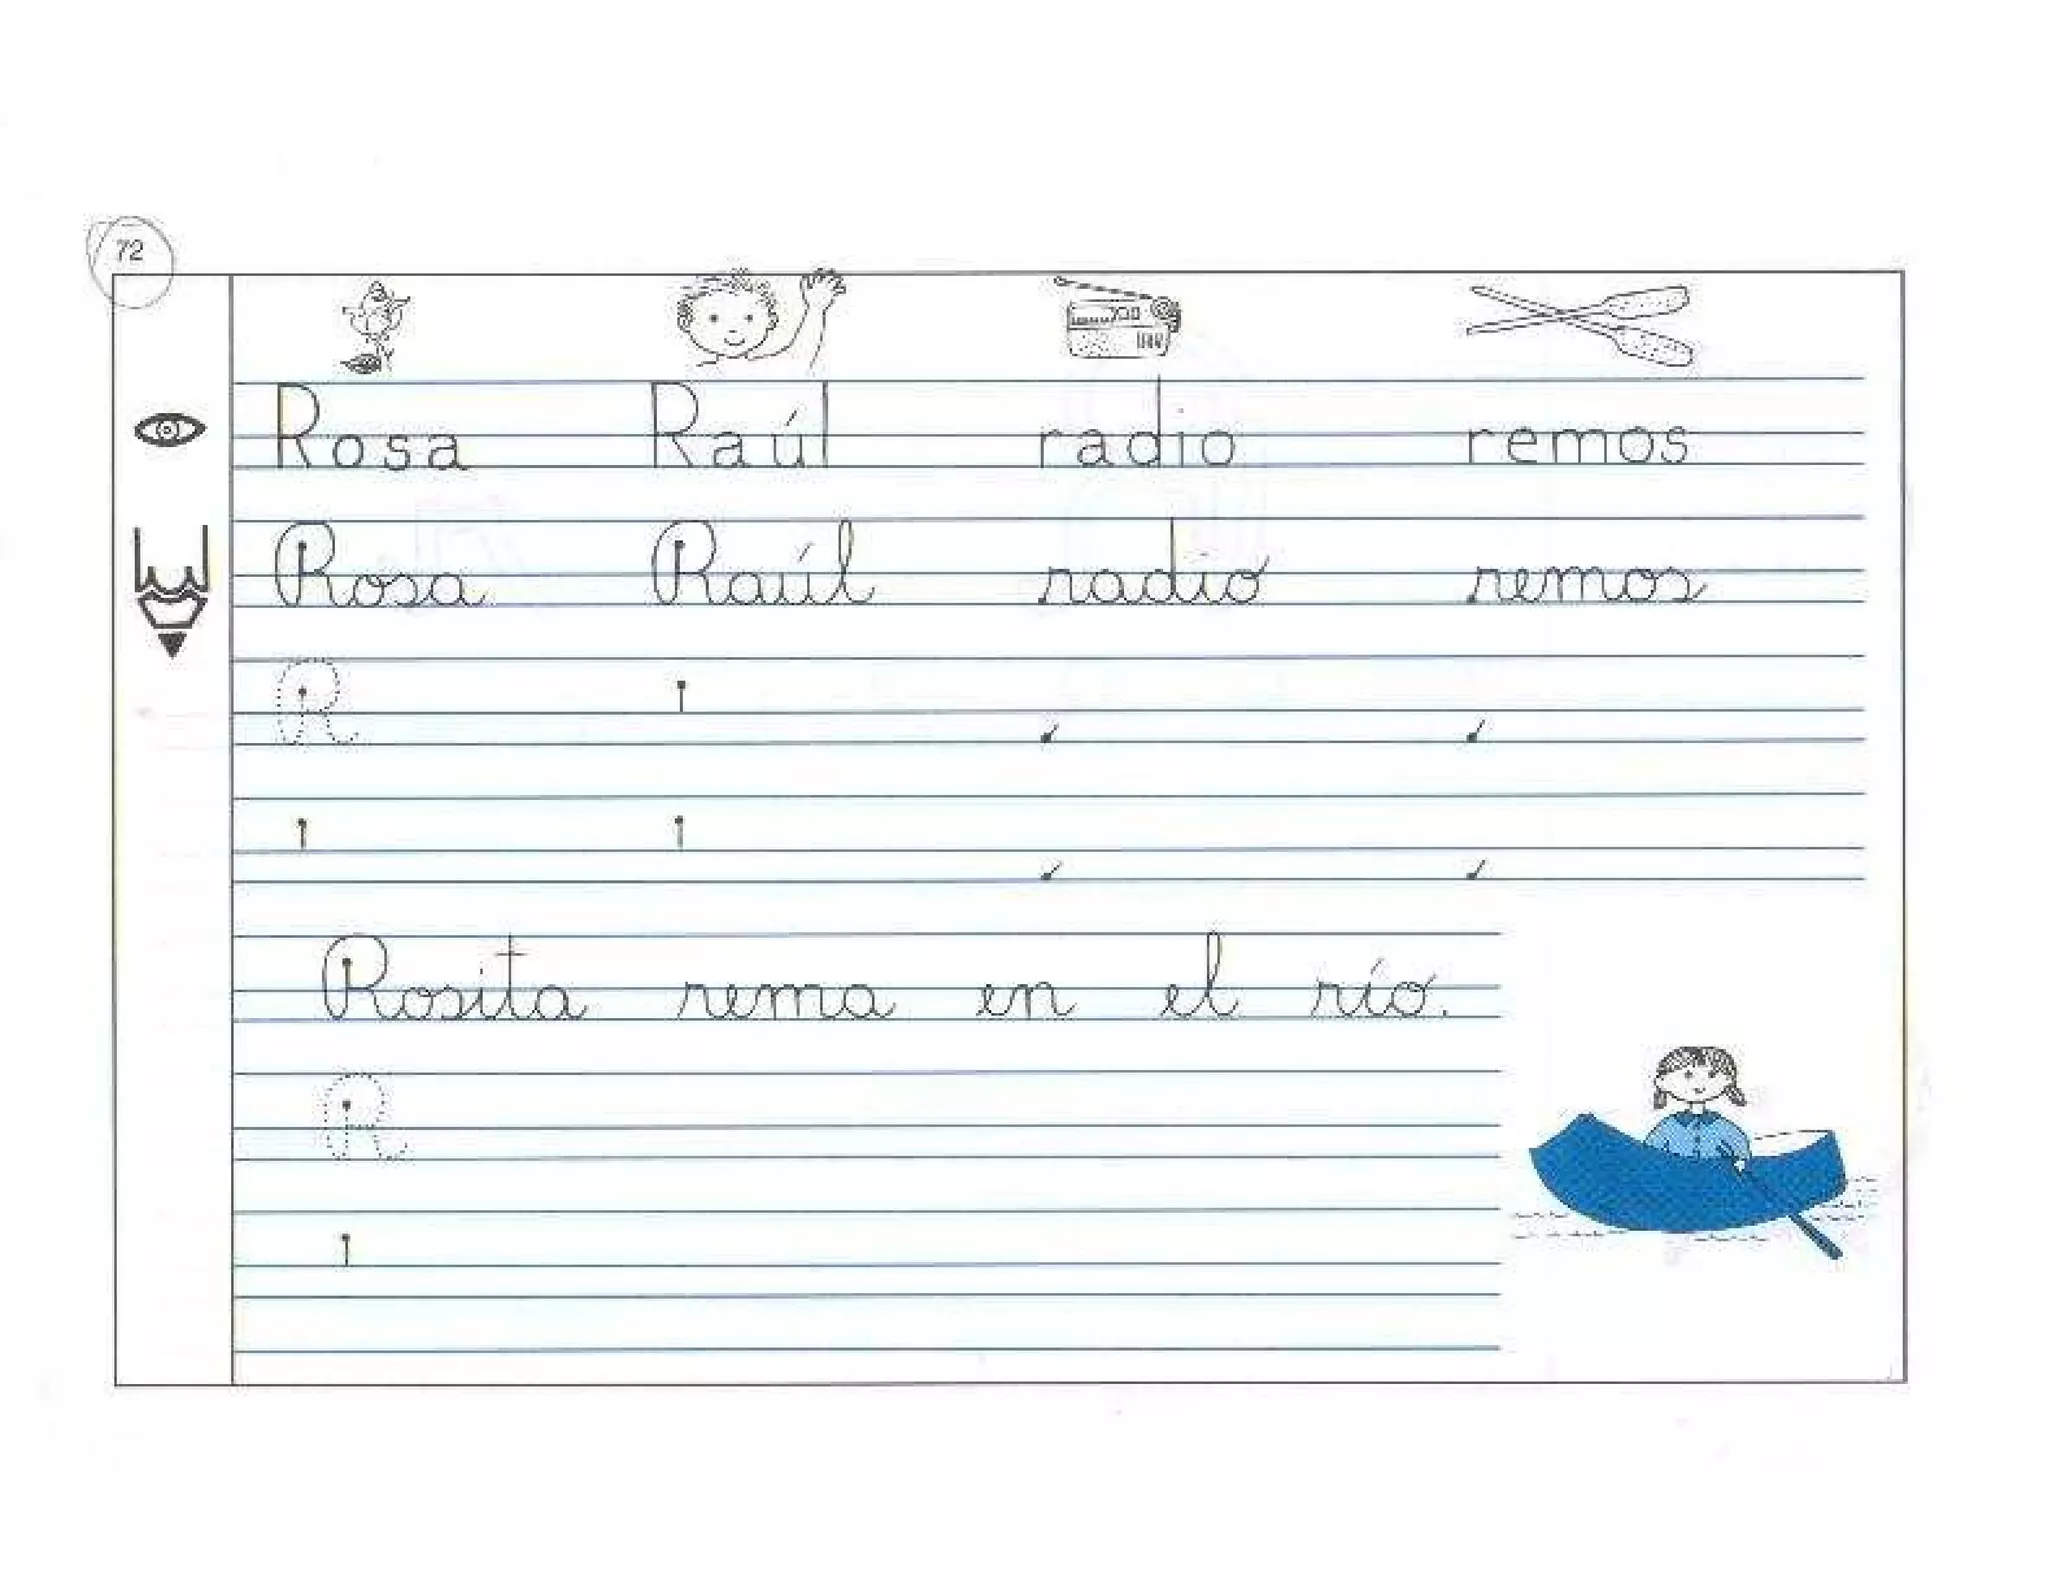 72
Rosa Raúl radio remos
Rosa Raúl radio remos
R
Rosita rema en el río.
R